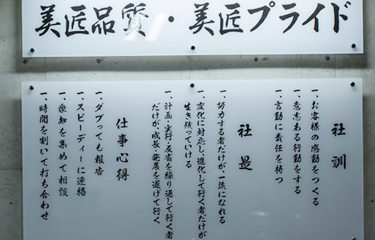 美匠品質・美匠プライド
社訓
一、お客様の感動をつくる
一、意志ある行動をする
一、言動に責任を持つ
社是
一、努力する者だけが、一流になれる
一、変化に対応し、進化して行く者だけが
生き残っていける
一、計画・実行・反省を繰り返して行く者
だけが、成長・発展を遂げて行く
仕事心得
一、ダブっても報告
一、スピーディーに連絡
一、衆知を集めて相談
一、時間を割いて打ち合わせ